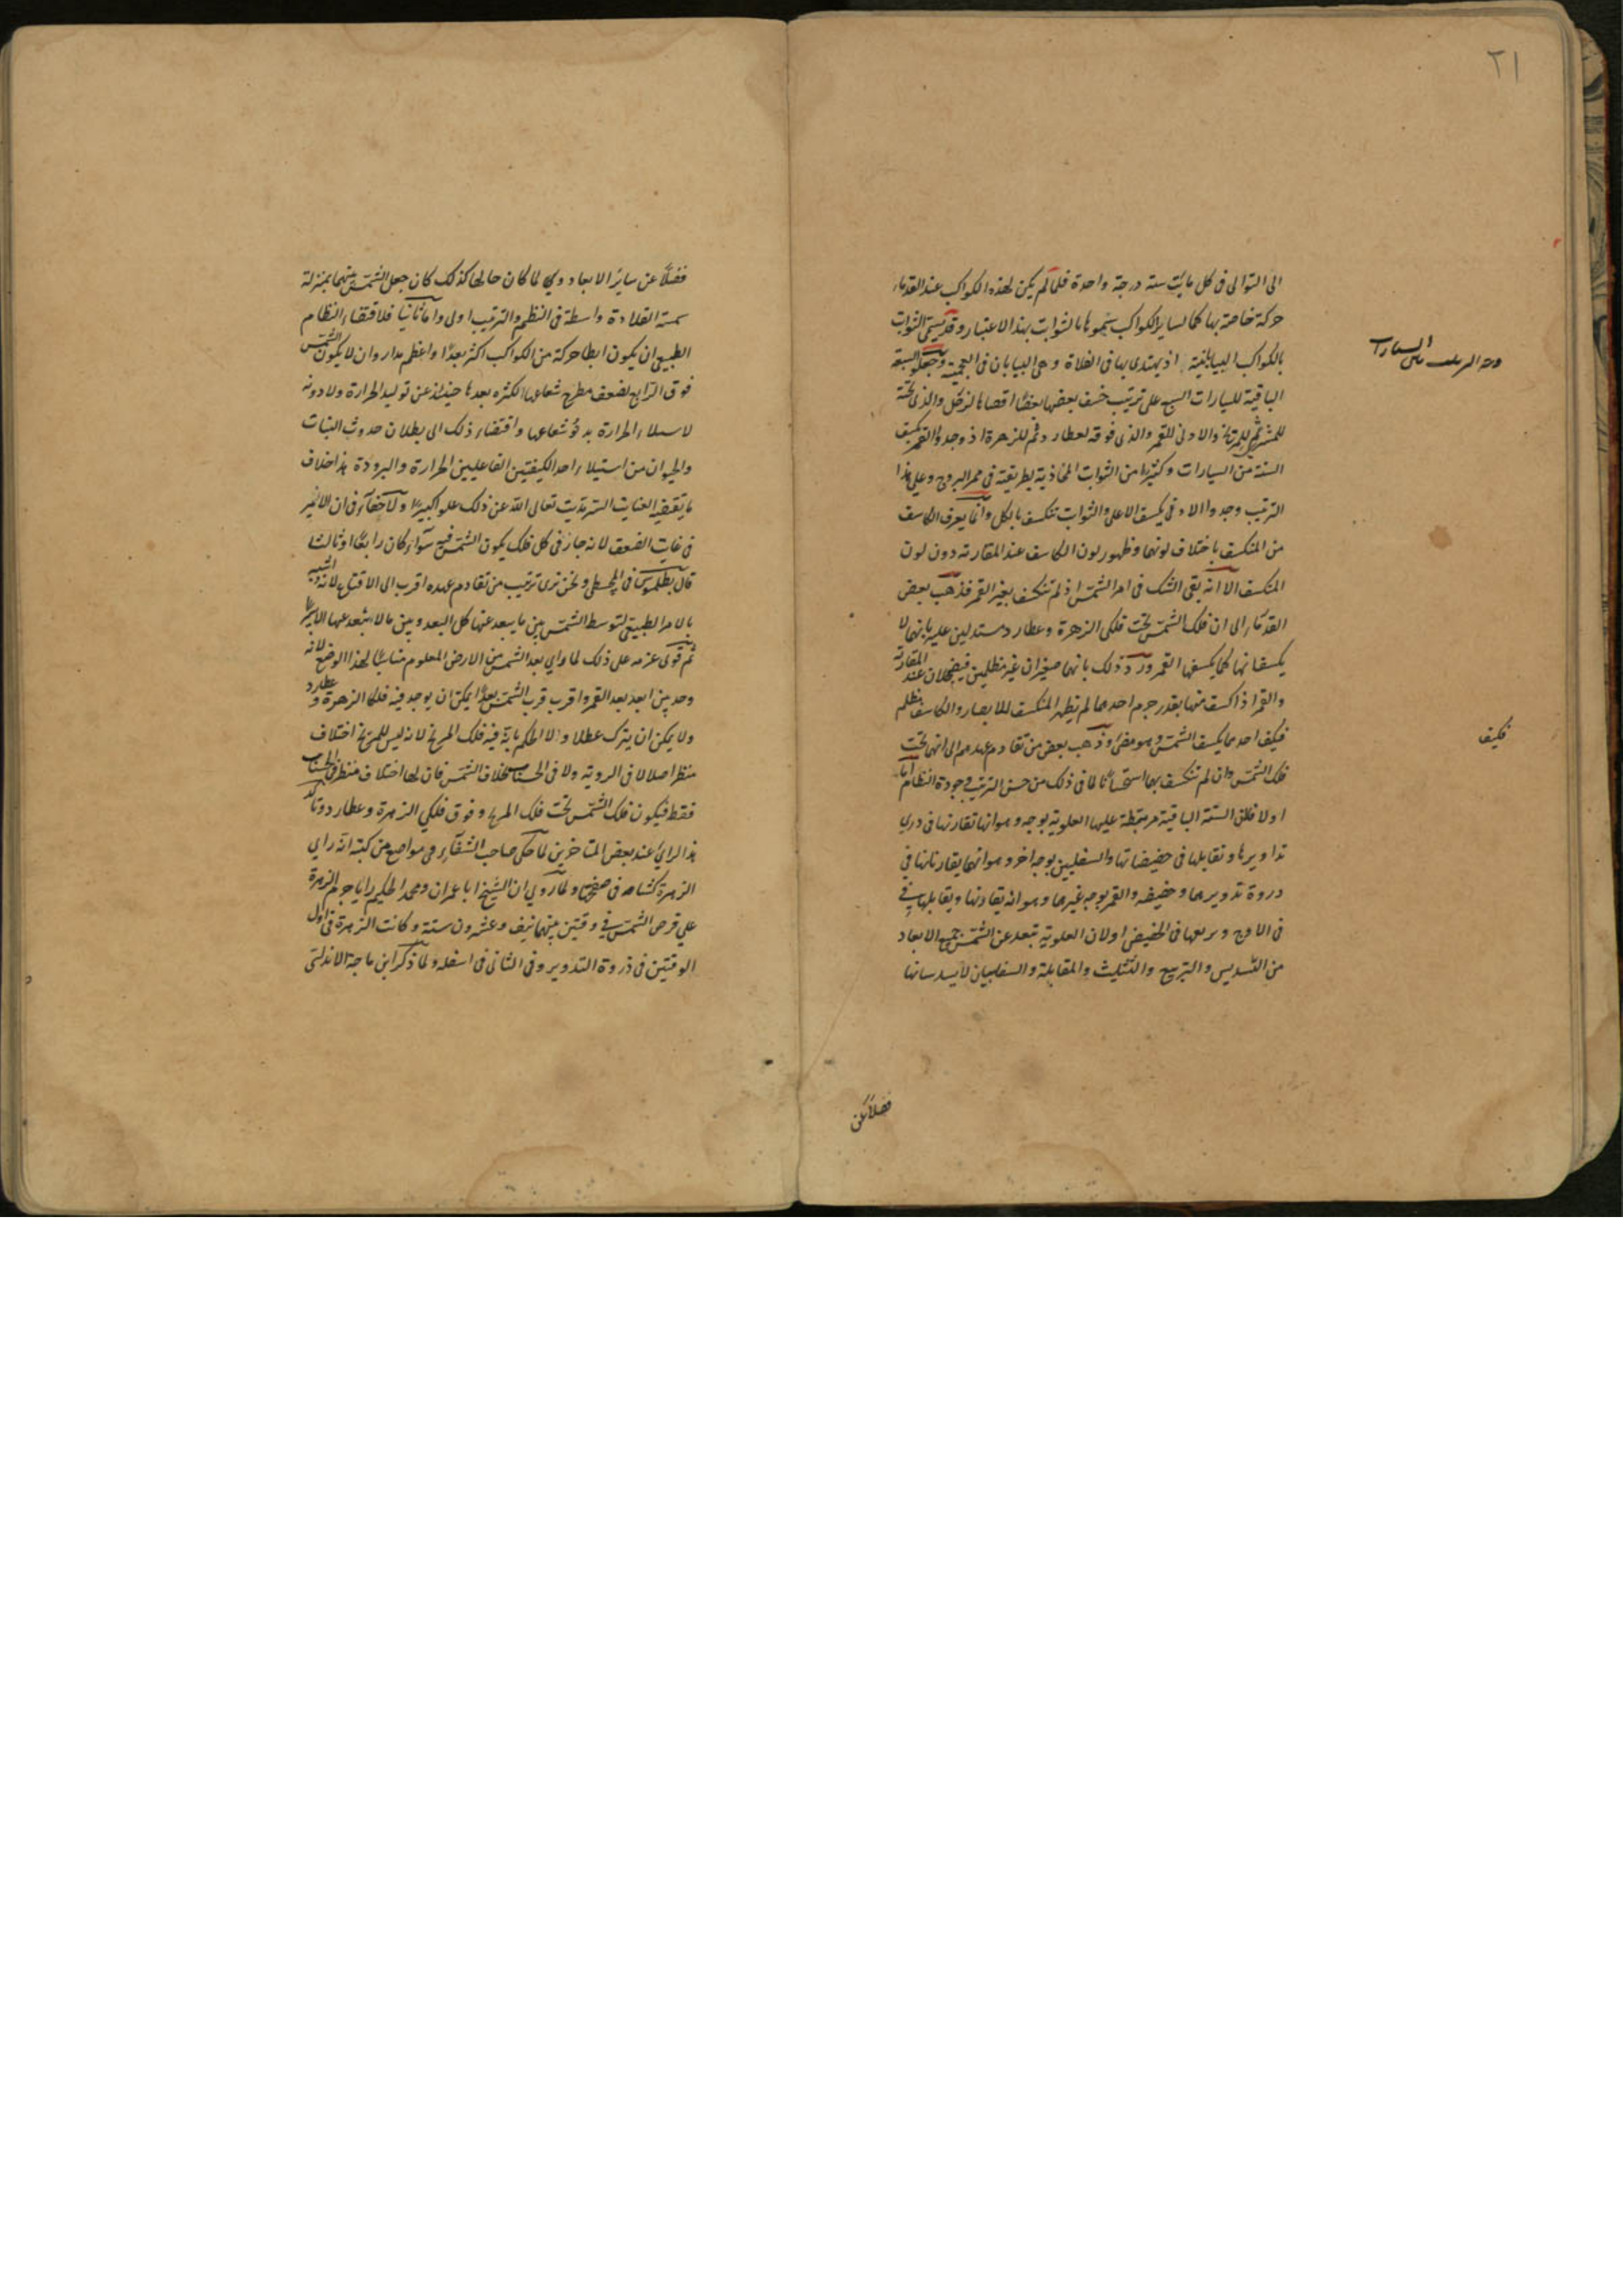 ٢١
الى التوالى فى كل مايت سنة درجة واحدة فلما لم يكن لهذه الكواكب عند القدماء
حركة خاصة بها كما لساير الكواكب سموها بالثوابت بهذا الاعتبار وقد يسمى الثوابت
بالكواكب البيابانية اذ يهتدى بها فى الفلاة وهى البيابان فى العجمية وجعلوا السبعة
الباقية للسيارات السبع على ترتيب خسف بعضها بعضا اقصاها لزحل والذى تحته
للمشترى ثم للمريخ والادنى للقمر والذى فوقه لعطارد ثم للزهرة اذ وجدوا القمر يكسف
الستة من السيارات وكثيرا من الثوابت المحاذية لطريقته فى ممر البروج وعلى هذا
الترتيب وجدوا الادنى يكسف الاعلى والثوابت تنكسف بالكل وانما يعرف الكاسف
من المنكسف باختلاف لونهما وظهور لون الكاسف عند المقارنة دون لون
المنكسف الا انه بقى الشك فى امر الشمس اذ لم تنكسف بغير القمر فذهب بعض
القدماء الى ان فلك الشمس تحت فلكى الزهرة وعطارد مستدلين عليه بانهما لا
يكسفانها كما يكسفها القمر ورد ذلك بانهما صغيران غير مظلمين فيضمحلان عند المقارنة
والقمر اذا كسف منها بقدر جرم احدهما لم يظهر المنكسف للابصار والكاسف مظلم
فكيف احدهما يكسف الشمس وهو مضئ وذهب بعض من تقادم عهدهم الى انهما تحت
فلك الشمس وان لم تنكسف بهما استحسانا لما فى ذلك من حسن الترتيب وجودة النظام اما
اولا فلان الستة الباقية مرتبطة عليها العلوية بوجه وهو انها تقارنها فى ذرى
تداويرها وتقابلها فى حضيضاتها والسفليين بوجه اخر وهو انهما يقارنانها فى
ذروة تدويرهما وحضيضه والقمر بوجه غيرهما وهو انه يقارنها ويقابلها فى
فى الاوج ويربعها فى الحضيض اولان العلوية تبعد عن الشمس جميع الابعاد
من التسديس والتربيع والتثليث والمقابلة والسفليان لا يسدسانها
السيارات
فكيف
فضلا عن
فضلا عن ساير الابعاد وى لما كان حالها كذلك كان جعل الشمس بينهما بمنزلة
شمسة القلادة واسطة فى النظم والترتيب اولى واما ثانيا فلاقتضاء النظام
الطبيعى ان يكون ابطا حركة من الكواكب اكثر بعدا واعظم مدار وان لا يكون الشمس
فوق الرابع لضعف مطرح شعاعها لكثره بعدها حينئذ عن توليد الحرارة ولا دونه
لاستيلاء الحرارة بدنو شعاعها واقتضاء ذلك الى بطلان حدوث النبات
والحيوان من استيلاء احد الكيفيتين الفاعليين الحرارة والبرودة هذا خلاف
ما يقتضيه العنايت السرمديت تعالى الله عن ذلك علوا كبيرا ولا خفاء فى ان الاخير
فى غايت الضعف لانه جار فى كل فلك يكون الشمس فيه سواء كان رابعا او ثالثا
قال بطلميوس فى المجسطى ونحن نرى ترتيب من تقادم عهده اقرب الى الاقناع لانه اشبه
بالامر الطبيعى لتوسط الشمس بين ما يبعد عنها كل البعد وبين ما لا يبعد عنها الا يسيرا
ثم قوى عزمه على ذلك لما راى بعد الشمس من الارض المعلوم مناسبا لهذا الوضع لانه
وجد بين ابعد بعد القمر واقرب قرب الشمس بعدا يمكن ان يوجد فيه فلكا الزهرة وعطارد
ولا يمكن ان يترك عطلا ولا الحكم بانه فيه فلك المريخ لانه ليس للمريخ اختلاف
منظر اصلا لا فى الروية ولا فى الحساب بخلاف الشمس فان لها اختلاف منظر فى الحساب
فقط فيكون فلك الشمس تحت فلك المريخ وفوق فلكى الزهرة وعطارد وتاكد
هذا الراى عند بعض المتاخرين لما حكى صاحب الشفاء فى مواضع من كتبه انه راى
الزهرة كشامة فى صفحتها ولما روى ان الشيخ ابا عمران ومحمد الحكيم رايا جرم الزهرة
على قرص الشمس فى وقتين بينهما نيف وعشرون سنة وكانت الزهرة فى اول
الوقتين فى ذروة التدوير وفى الثانى فى اسفله ولما ذكر ابن ماجة الاندلسى